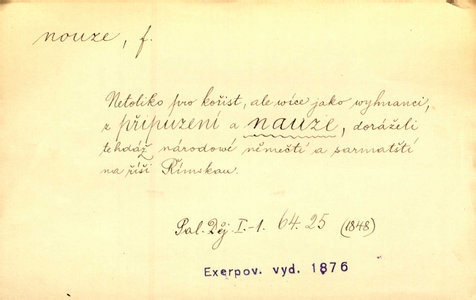 nouze, f.
Netoliko pro kořist, ale více jako wyhnanci,
z připuzení a nauze, doráželi
tehdáž národowé němečtí a sarmatští
na říši Římskau.
Pal. Děj. I.-1. 64.25 (1848)
Exerpov. vyd. 1876